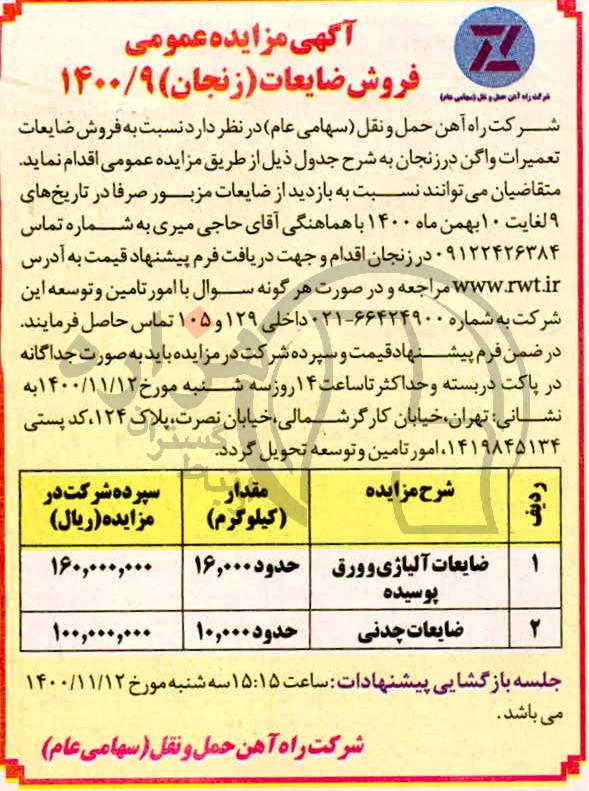 آگهی مزایده عمومی
فروش ضایعات (زنجان) ۱۴۰۰/۹
شرکت راه آهن حمل و نقل (سهامی عام)
شرکت راه آهن حمل و نقل (سهامی عام) در نظر دارد نسبت به فروش ضایعات
تعمیرات واگن در زنجان به شرح جدول ذیل از طریق مزایده عمومی اقدام نماید.
متقاضیان می توانند نسبت به بازدید از ضایعات مزبور صرفا در تاریخ های
۹ لغایت ۱۰ بهمن ماه ۱۴۰۰ با هماهنگی آقای حاجی میری به شماره تماس
۰۹۱۲۲۴۲۶۳۸۴ در زنجان اقدام و جهت دریافت فرم پیشنهاد قیمت به آدرس
www.rwt.ir مراجعه و در صورت هر گونه سوال با امور تامین و توسعه این
شرکت به شماره ۶۶۴۲۴۹۰۰-۰۲۱ داخلی ۱۲۹ و ۱۰۵ تماس حاصل فرمایند.
در ضمن فرم پیشنهاد قیمت و سپرده شرکت در مزایده باید به صورت جداگانه
در پاکت دربسته و حداکثر تا ساعت ۱۴ روز سه شنبه مورخ ۱۴۰۰/۱۱/۱۲ به
نشانی: تهران، خیابان کارگر شمالی، خیابان نصرت، پلاک ۱۲۴، کد پستی
۱۴۱۹۸۴۵۱۳۴، امور تامین و توسعه تحویل گردد.
ردیف شرح مزایده مقدار (کیلوگرم) سپرده شرکت در مزایده (ریال)
۱ ضایعات آلیاژی و ورق پوسیده حدود ۱۶,۰۰۰ ۱۶۰,۰۰۰,۰۰۰
۲ ضایعات چدنی حدود ۱۰,۰۰۰ ۱۰۰,۰۰۰,۰۰۰
جلسه بازگشایی پیشنهادات: ساعت ۱۵:۱۵ سه شنبه مورخ ۱۴۰۰/۱۱/۱۲
می باشد.
شرکت راه آهن حمل و نقل (سهامی عام)